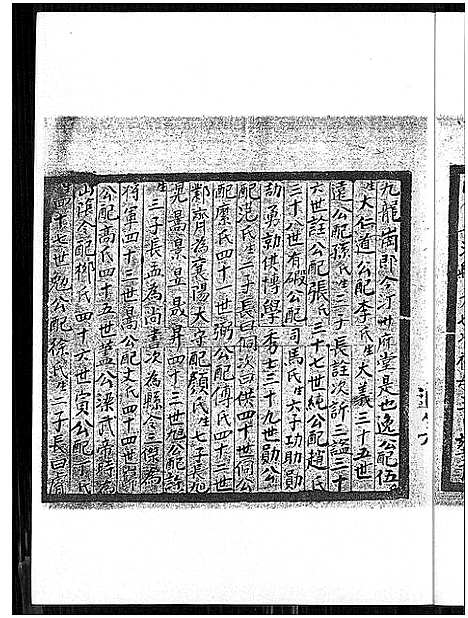 九龍崗即今汀州府堂是也逸公配伍
氏生大仁道公配李氏生大義三十五世
遠公配孫氏生三子長註次訢三諡三十
六世註公配張氏三十七世純公配趙氏
三十八世有嘏公配司馬氏生六子功助勛
劼勇勃俱博學秀士三十九世勛公
配范氏生二子長曰侗次曰供四十世侗公
配廖氏四十一世弼公配傅氏四十二世
鄴齊為襄陽大守配顏氏生七子長旭
晃暠景显晸昇四十三世旭公配
生三子長為尚書次為縣令三傑為
將軍四十三世暠公配文氏四十四世
公配高氏四十五世蓋公梁武帝時為
山陰令配柳氏四十六世寅公配氏
四十七世勉公配徐氏生二子長曰